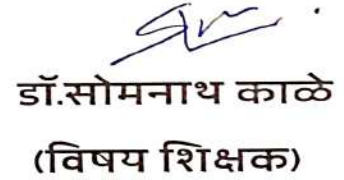 डॉ.सोमनाथ काळे
(विषय शिक्षक)